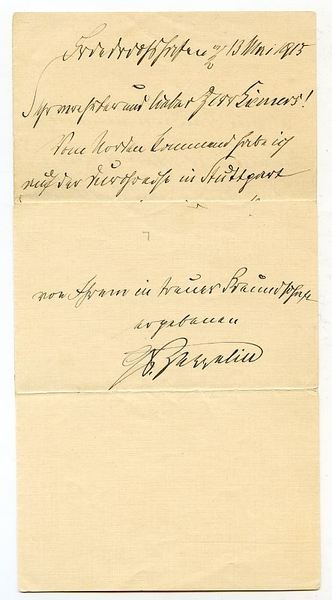 Friedrichshafen 13 Mai 1915
Sehr verehrter und lieber Herr
Vom Norden kommend habe ich
auf der Durchreise in Stuttgart
von Ihrem in treuer Freundschaft
ergebenen
Gf. Zeppelin